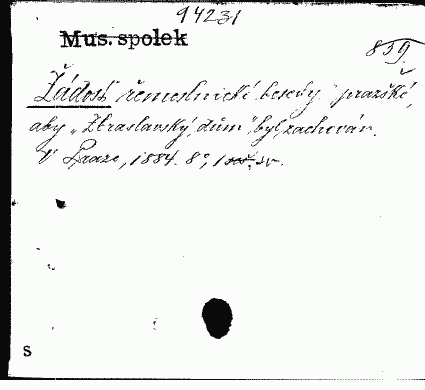 94231
Mus. spolek
859.
Žádost řemeslnické besedy pražské,
aby „Zbraslavský dům“ byl zachován.
V Praze, 1884. 8°, 1 sv.
s